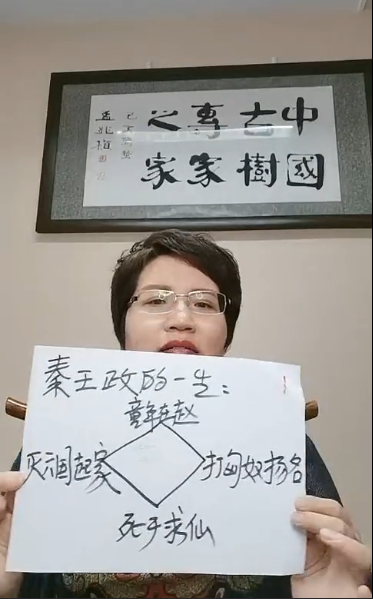 中國
古樹
專家
之家
秦王政的一生：
童年在赵
灭六国起家
打匈奴扬名
死于求仙